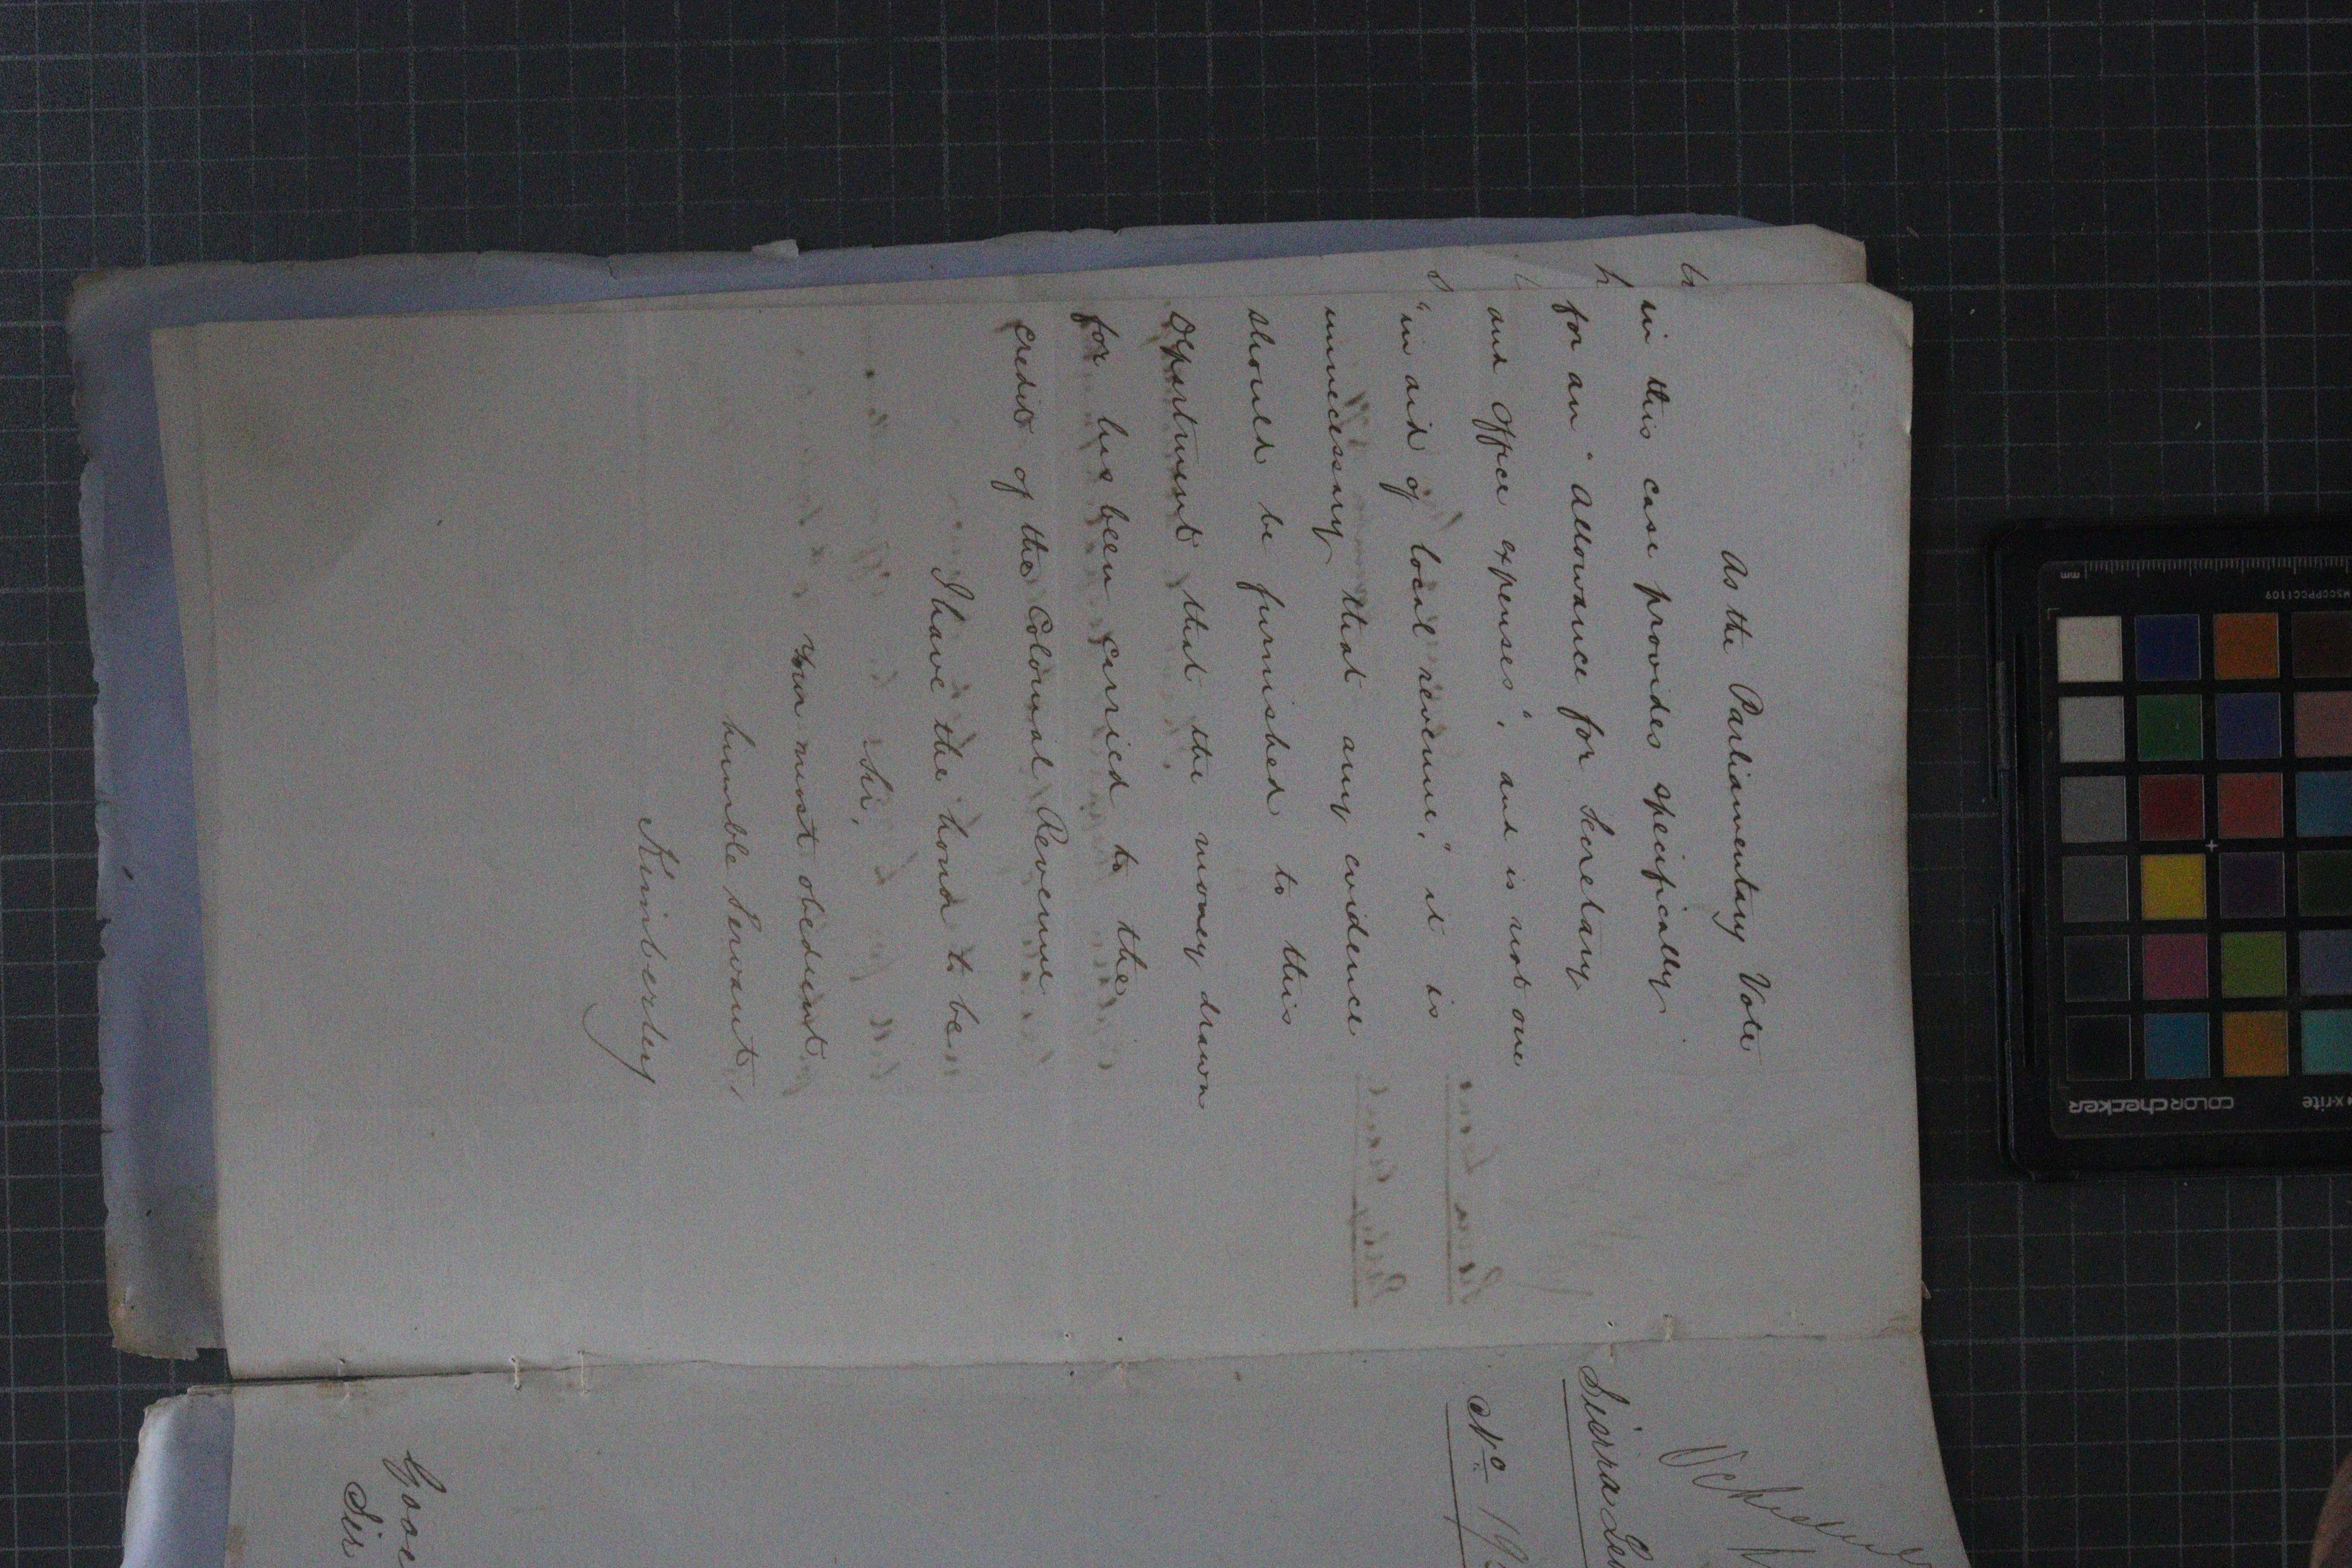 As the Parliamentary Vote
in this case provides specifically
for an "Allowance for Secretary
and Office expenses", and is not one
"in aid of local revenue," it is
unnecessary that any evidence
should be furnished to this
Department that the money drawn
for has been carried to the
credit of the Colonial Revenue
I have the honor to be
Sir,
Your most obedient
humble Servant,
Kimberley
Sierra Leo
No 19
Gove
Sir
mm
MSCCPPCC1109
colorchecker
x-rite